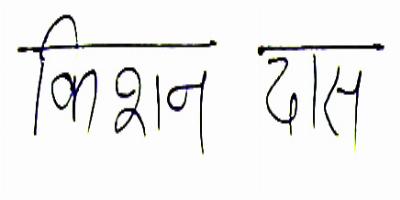 किशन दास